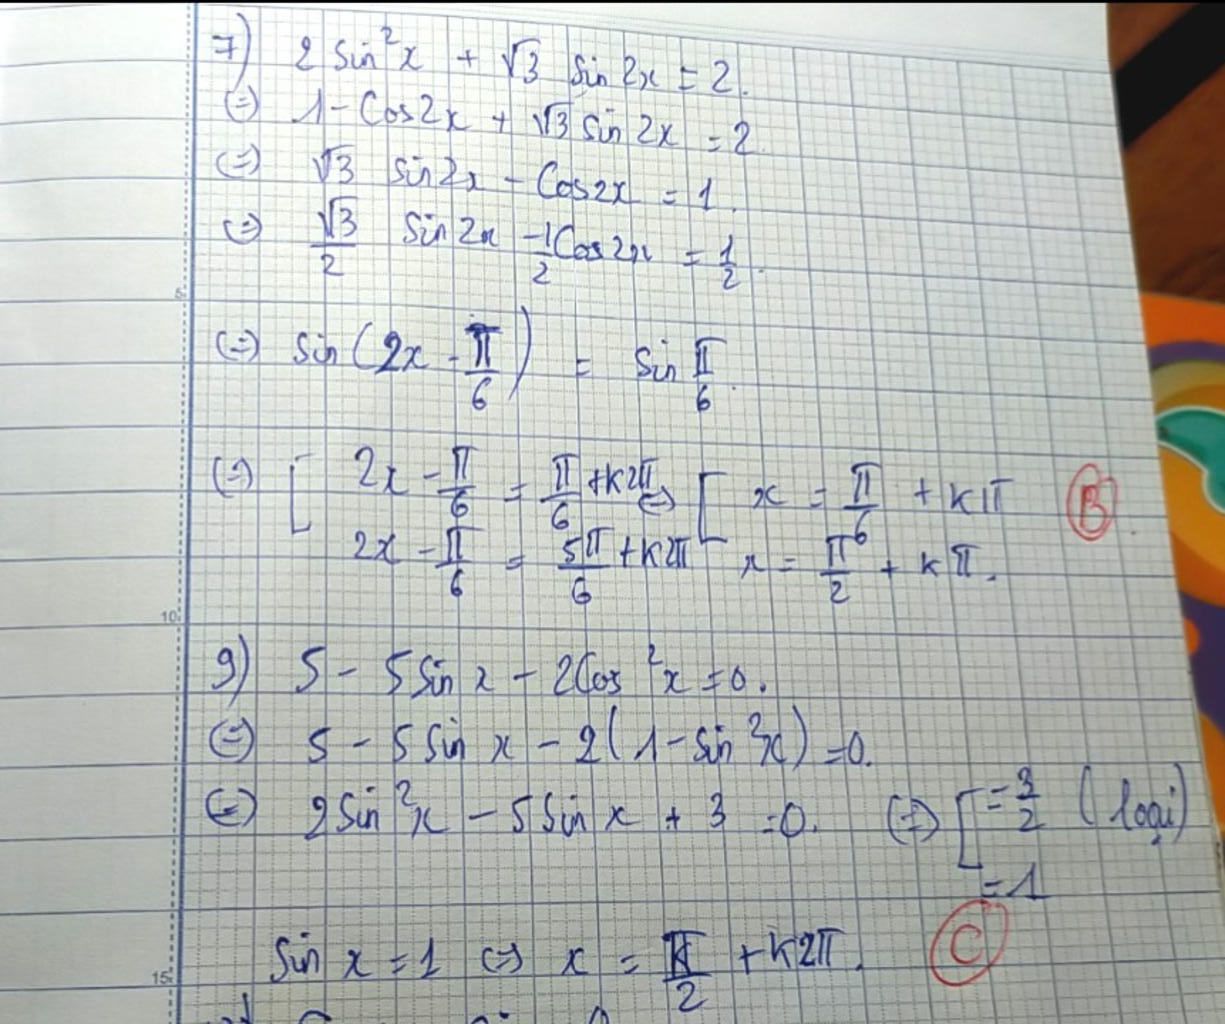 7) 2 sin²x + √3 sin 2x = 2.
(=) 1 - Cos2x + √3 sin 2x = 2
(=) √3 sin2x - Cos2x = 1.
(=) √3/2 sin 2x - 1/2 Cos2x = 1/2.
5
(=) sin(2x - π/6) = sin π/6.
(=) [ 2x - π/6 = π/6 + k2π (=) [ x = π/6 + kπ B
2x - π/6 = 5π/6 + k2π x = π/2 + kπ.
10
9) 5 - 5 sin x - 2Cos²x = 0.
(=) 5 - 5 sin x - 2(1 - sin²x) = 0.
(=) 2sin²x - 5 sin x + 3 = 0. (=) [ = 3/2 (loại)
= 1
sin x = 1 (=) x = π/2 + k2π. C
15